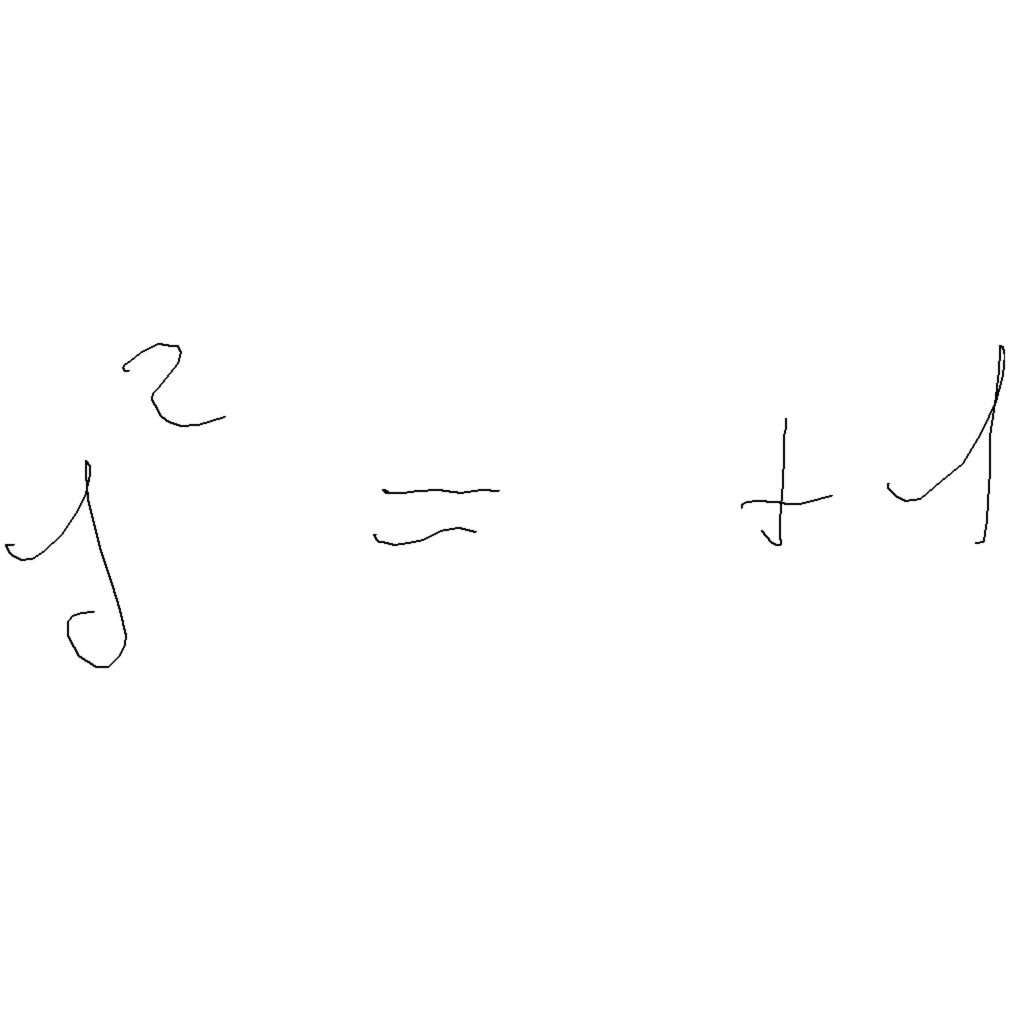 j² = +1